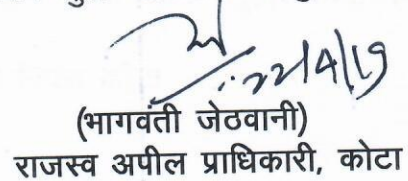 22/4/19
(भागवंती जेठवानी)
राजस्व अपील प्राधिकारी, कोटा